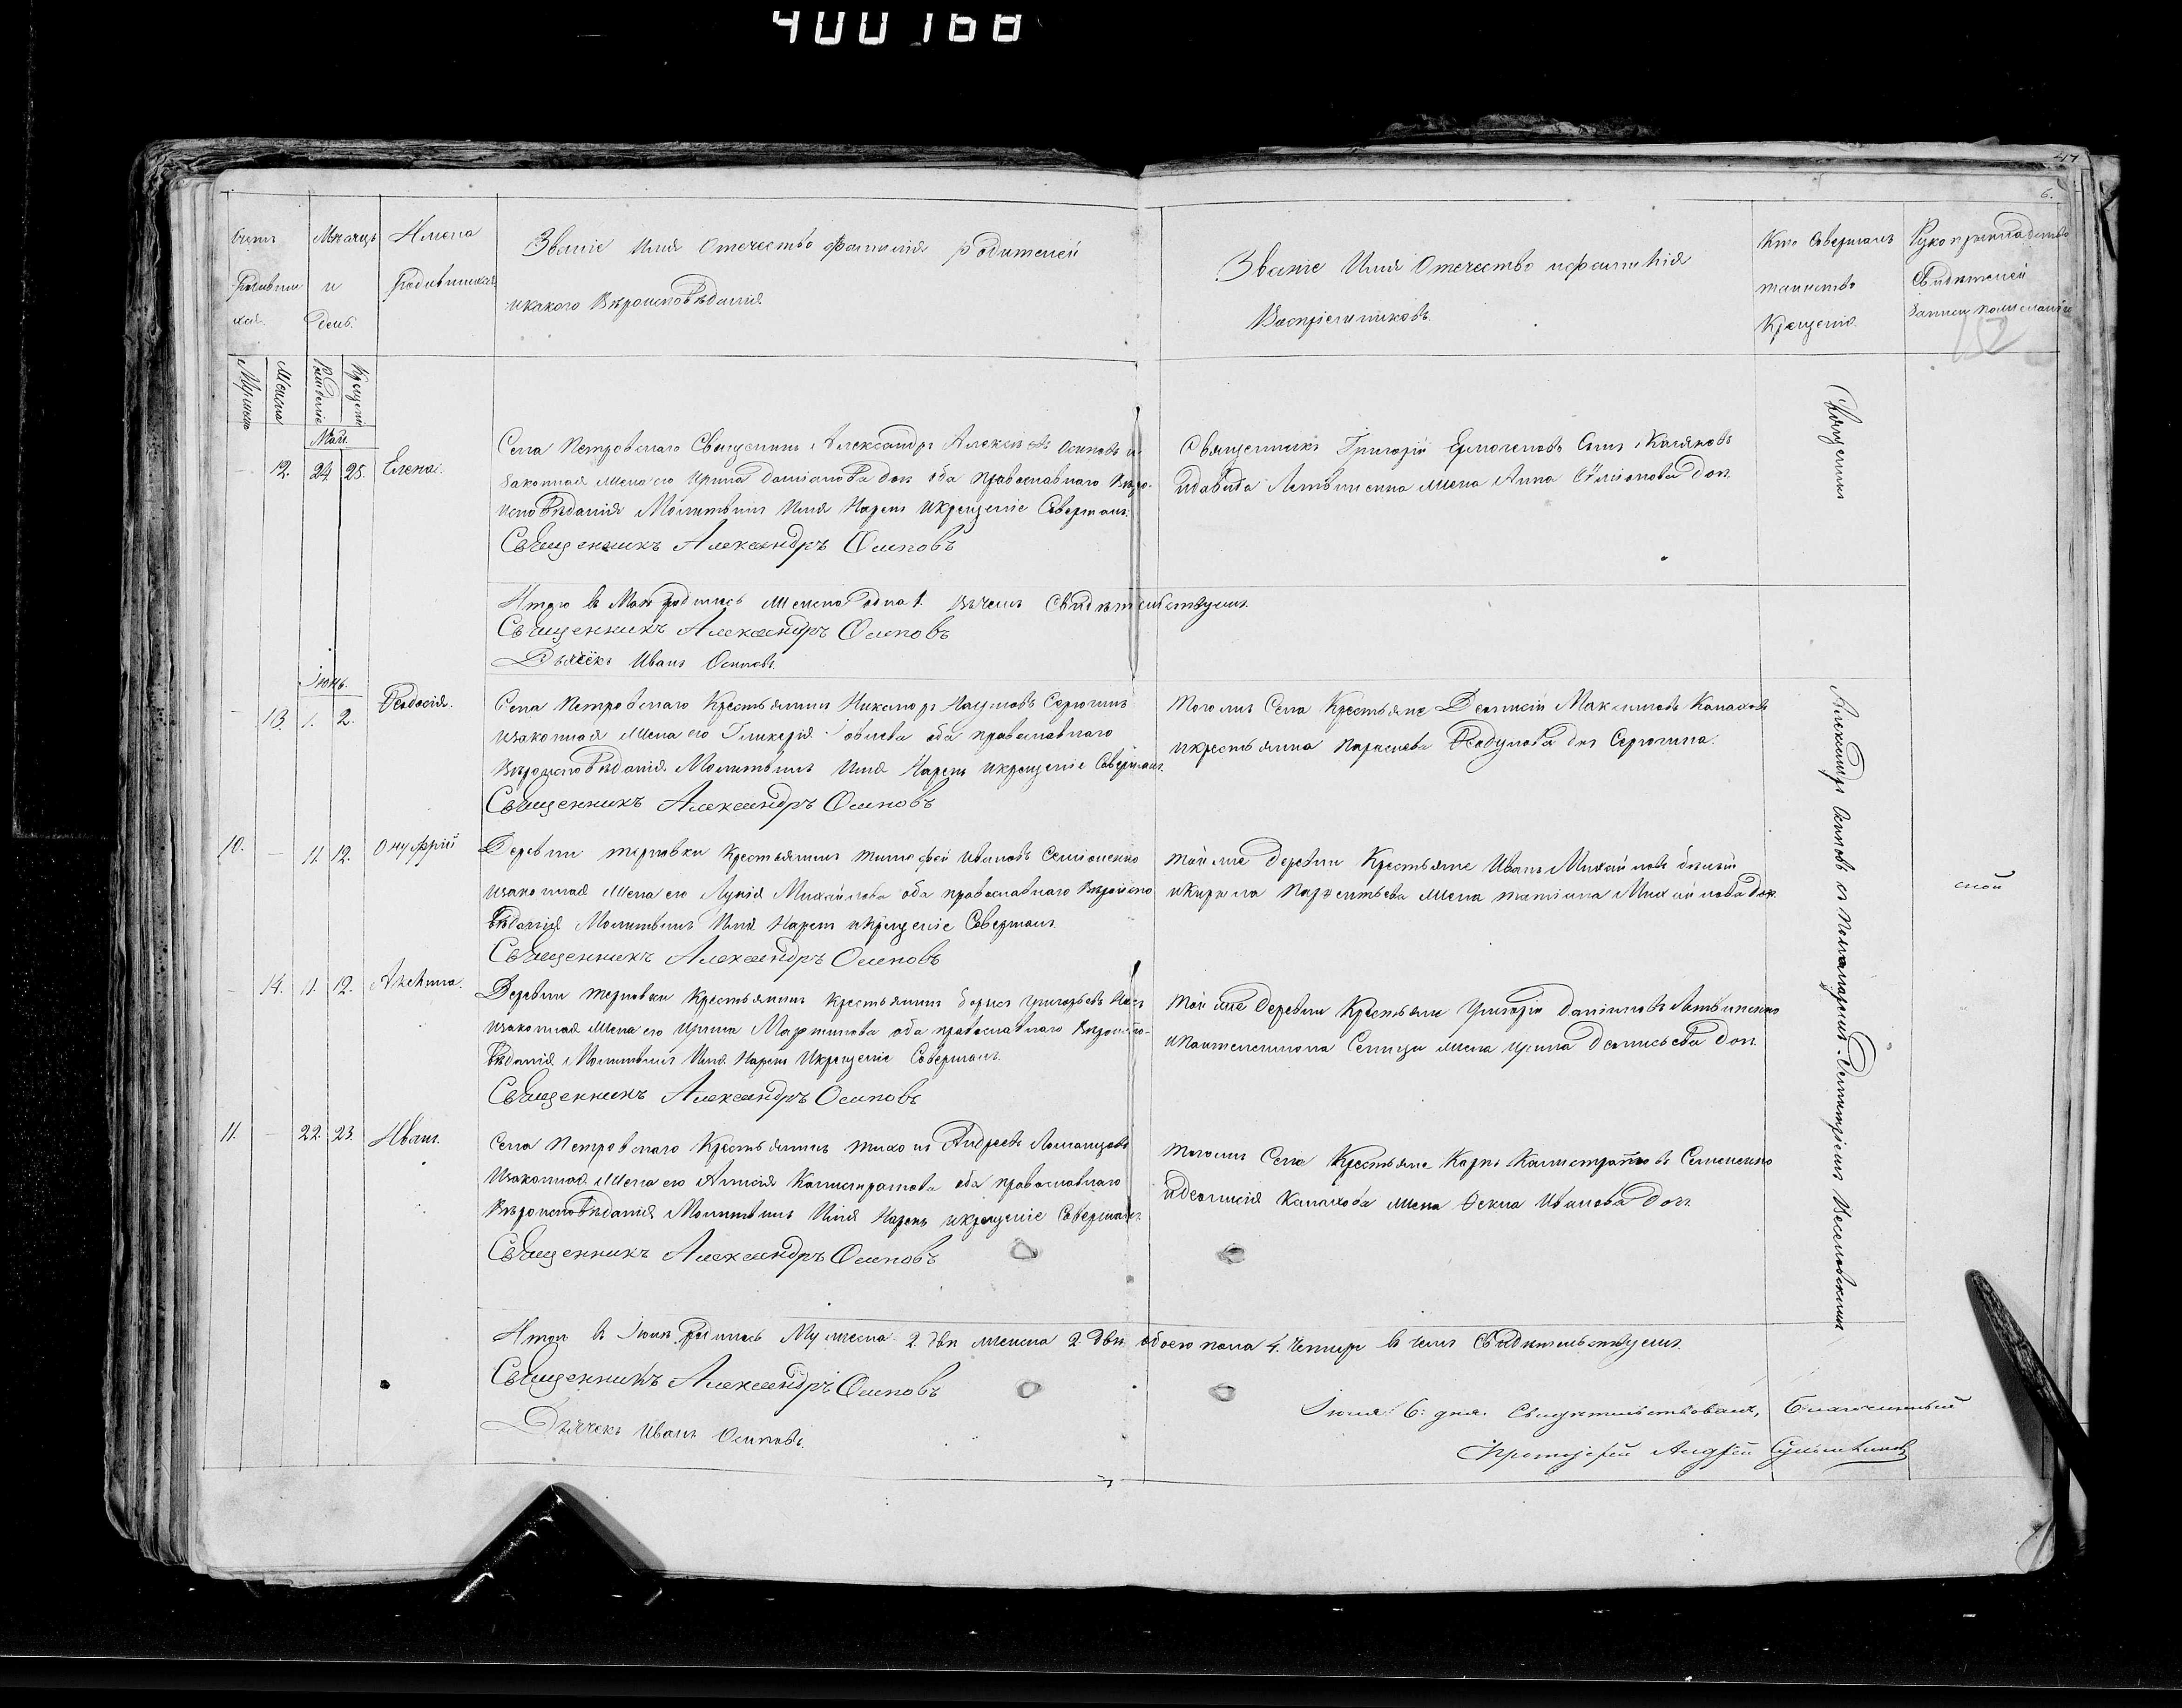 400168
47
6.
Счетъ родившихся.
Мѣсяцъ и день.
Имена родившихся
Званіе Имя Отечество Фамилія родителей
икакого Вѣроисповѣданія
Званіе Имя Отечество ифамилія
Воспріемниковъ.
Кто Совершалъ таинство Крещенія
Рукоприкладство Свидѣтелей
152
Мужеска
Женска
Рожденія
Крещенія
Май.
12. 24. 25. Елена.
Села Петровскаго Священникъ Александръ Алексѣевъ Осиповъ и
Законная жена его Ирина даміанова доч оба православнаго Вѣро-
исповѣданія Молитвилъ Имя Нарекъ икрещеніе Совершалъ.
Священникъ Александръ Осиповъ
Священникъ Григорій Ермогеновъ Сынъ
идавида Литвиненка жена Анна доч.
Итого въ Маѣ родилась женска одна 1. Въчемъ Свидѣтельствуемъ.
Священникъ Александръ Осиповъ
Дьячекъ Иванъ Осиповъ.
Іюнь.
13. 1. 2. Феодосія.
Села Петровскаго Крестьянинъ Никаноръ Наумовъ Серюгинъ
изаконная жена его Гликерія Іовлева оба православнаго
Вѣроисповѣданія Молитвилъ Имя Нарекъ икрещеніе Совершалъ.
Священникъ Александръ Осиповъ
Тогожъ Села Крестьяне Деонисій Максимовъ Канаховъ
икрестьянка доч Серюгина.
10. 11. 12. Онуфрій
Деревни терновки Крестьянинъ тимофей Ивановъ Семіоненко
изаконная жена его Лукія Михайлова оба православнаго Вѣроиспо
вѣданія Молитвилъ Имя Нарекъ икрещеніе Совершалъ.
Священникъ Александръ Осиповъ
той же деревни Крестьяне Иванъ Михайловъ
икирила жена татіана Михайлова доч.
14. 11. 12. Акелина.
Деревни терновки Крестьянинъ Крестьянинъ борисъ григорьевъ
изаконная жена его Ирина Мартинова оба православнаго Вѣроиспо-
вѣданія Молитвилъ Имя Нарекъ Икрещеніе Совершалъ.
Священникъ Александръ Осиповъ
той же деревни Крестьяне Григорій даниловъ Литвиненко
ипантелеимона жена Ирина деонисьева доч.
11. 22. 23. Иванъ.
Села Петровскаго Крестьянинъ тихонъ Андреевъ
изаконная жена его Каллистратова оба православнаго
Вѣроисповѣданія Молитвилъ Имя Нарекъ икрещеніе Совершалъ.
Священникъ Александръ Осиповъ
Тогожъ Села Крестьяне Карпъ Каллистратовъ Семененко
идеонисія Канахова жена Ѳекла Иванова доч.
Священникъ Александръ Осиповъ съ Пономаремъ Веселовскимъ
Итого въ Іюнѣ родилось Мужеска 2. двѣ женска 2. двѣ обоего пола 4. четыре въчемъ Свидѣтельствуемъ.
Священникъ Александръ Осиповъ
Дьячекъ Иванъ Осиповъ.
Іюля 6: дня. Свидѣтельствовалъ, Благочинный
Протоіерей Андрей